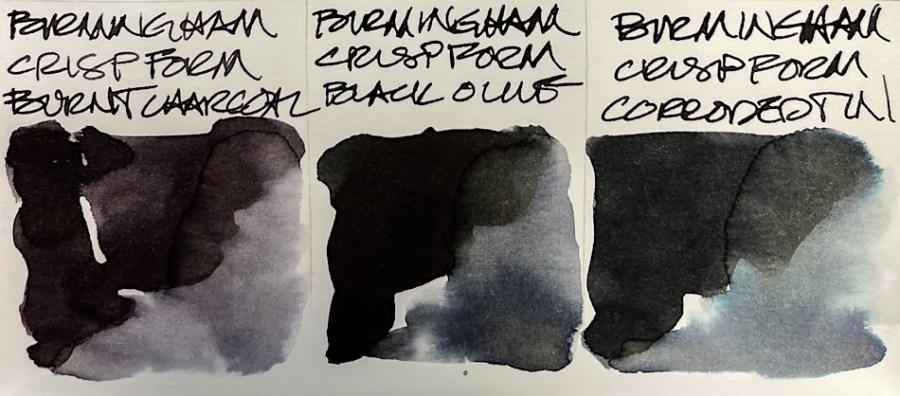 BIRMINGHAM
CRISP FORM
BURNT CHARCOAL
BIRMINGHAM
CRISP FORM
BLACK OLIVE
BIRMINGHAM
CRISP FORM
CORRODED TIN